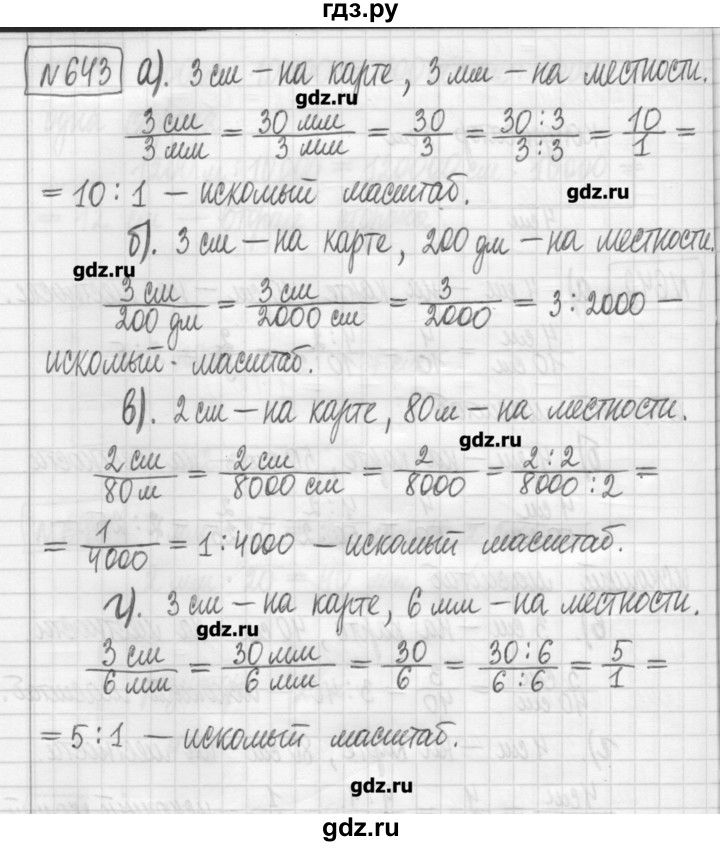 гдз.ру
№643 а). 3 см – на карте, 3 мм – на местности.
gdz.ru
3 см / 3 мм = 30 мм / 3 мм = 30 / 3 = 30 : 3 / 3 : 3 = 10 / 1 =
= 10 : 1 – искомый масштаб.
gdz.ru
б). 3 см – на карте, 200 дм – на местности.
gdz.ru
3 см / 200 дм = 3 см / 2000 см = 3 / 2000 = 3 : 2000 –
искомый масштаб.
в). 2 см – на карте, 80 м – на местности.
gdz.ru
2 см / 80 м = 2 см / 8000 см = 2 / 8000 = 2 : 2 / 8000 : 2 =
= 1 / 4000 = 1 : 4000 – искомый масштаб.
г). 3 см – на карте, 6 мм – на местности.
gdz.ru
3 см / 6 мм = 30 мм / 6 мм = 30 / 6 = 30 : 6 / 6 : 6 = 5 / 1 =
= 5 : 1 – искомый масштаб.
gdz.ru
gdz.ru